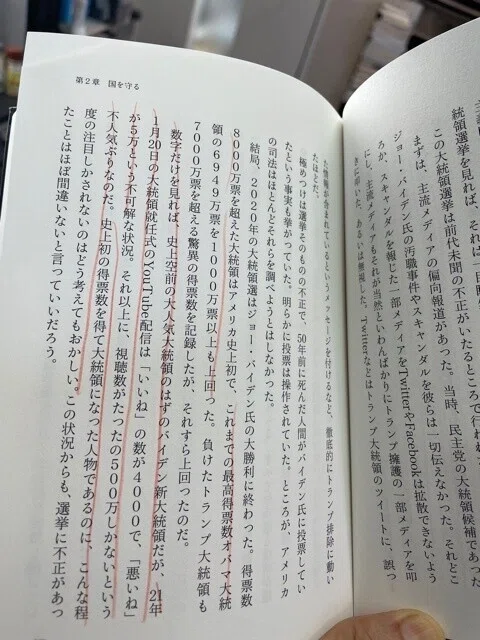 統領選挙を見れば、
この大統領選挙は前代未聞の不正がいたるところで行われ
まずは、主流メディアの偏向報道があった。当時、民主党の大統領候補であった
ジョー・バイデン氏の汚職事件やスキャンダルを彼らは一切伝えなかった。それどこ
ろか、スキャンダルを報じた一部メディアをTwitterやFacebookは拡散できないよう
にし、主流メディアもそれが当然といわんばかりにトランプ擁護の一部メディアを叩
きに叩いた、あるいは無視した。Twitterなどはトランプ大統領のツイートに、誤っ
第2章 国を守る
た情報が含まれているというメッセージを付けるなど、徹底的にトランプ排除に動い
たほどだ。
極めつけは選挙そのものの不正で、50年前に死んだ人間がバイデン氏に投票してい
たという事実も挙がっていた。明らかに投票は操作されていた。ところが、アメリカ
の司法はほとんどそれらを調べようとはしなかった。
結局、2020年の大統領選はジョー・バイデン氏の大勝利に終わった。得票数
8000万票を超えた大統領はアメリカ史上初で、これまでの最高得票数オバマ大統
領の6949万票を1000万票以上も上回った。負けたトランプ大統領も
7000万票を超える驚異の得票数を記録したが、それすら上回ったのだ。
数字だけを見れば、史上空前の大人気大統領のはずのバイデン新大統領だが、21年
1月20日の大統領就任式のYouTube配信は「いいね」の数が4000で、「悪いね」
が5万という不可解な状況。それ以上に、視聴数がたったの500万しかないという
不人気ぶりなのだ。史上初の得票数を得て大統領になった人物であるのに、こんな程
度の注目しかされないのはどう考えてもおかしい。この状況からも、選挙に不正があっ
たことはほぼ間違いないと言っていいだろう。